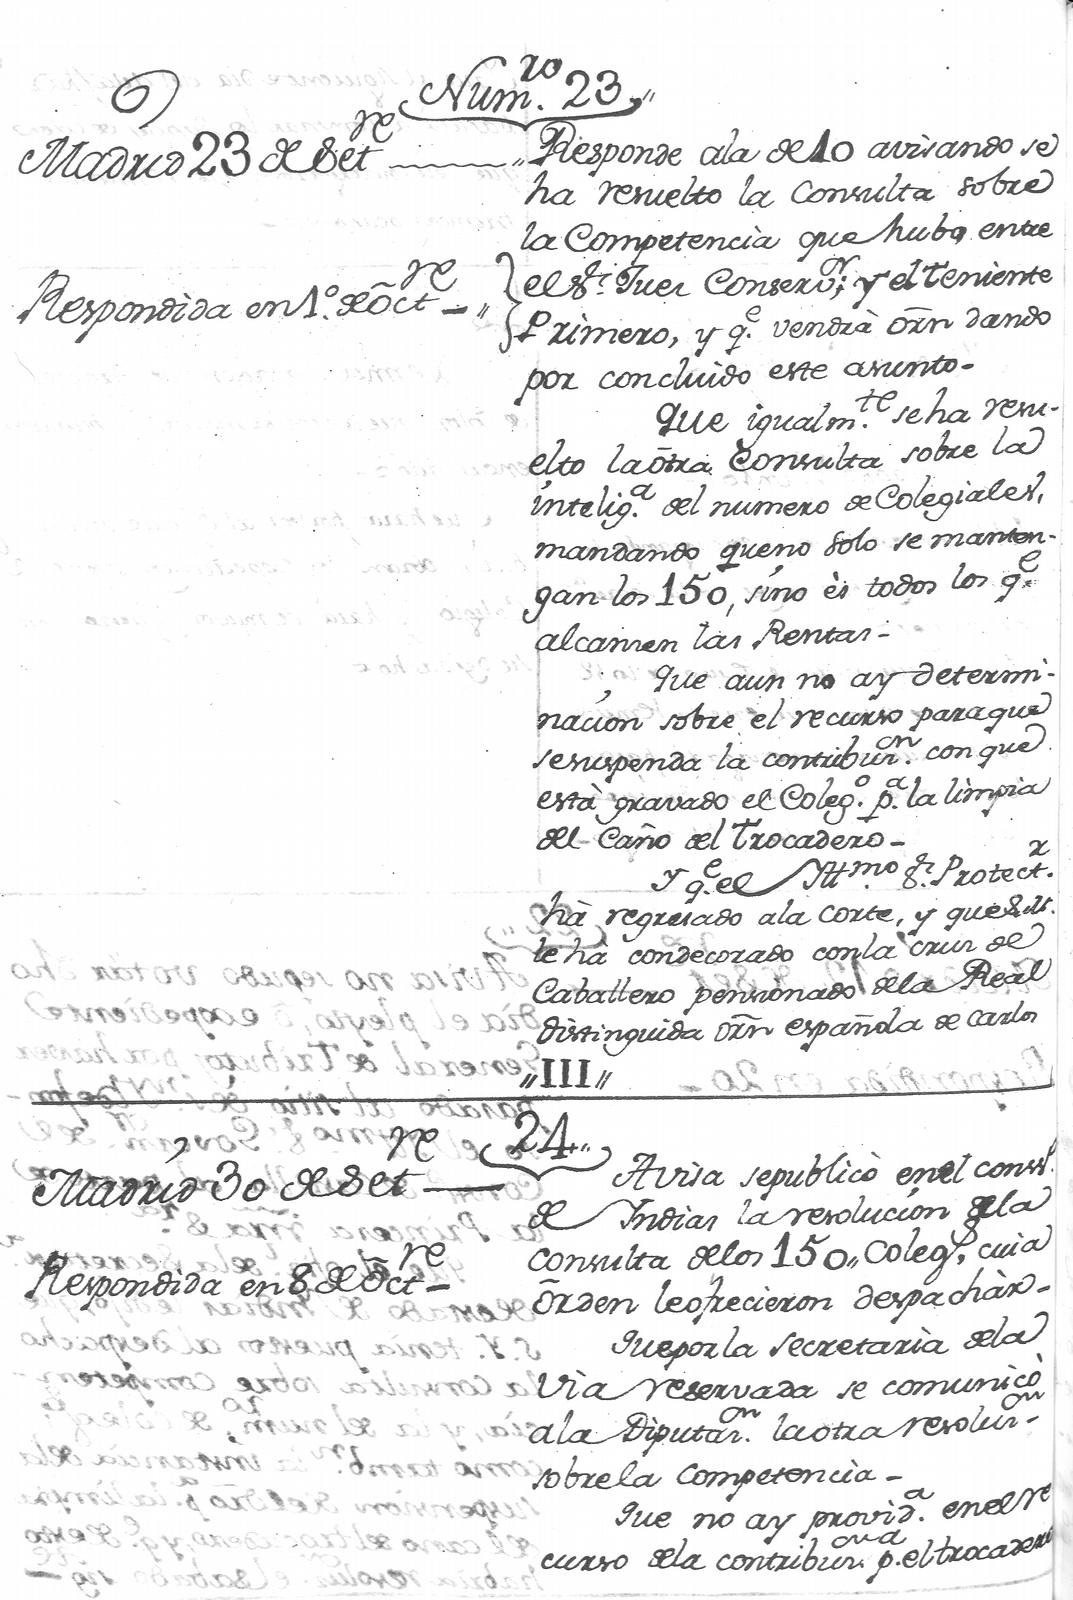 Num.ro 23,,
Madrid 23 de Setre
Respondida en 1º. de õctre
Responde ala de 10 avisando se
ha resuelto la Consulta sobre
la Competencia que hubo entre
el Sr. Juez Conserv.r, y el Teniente
Primero, y q.e vendrà orñ dando
por concluido este asunto-
Que igualm.te se ha resu-
elto la õtra Consulta sobre la
intelig.a del numero de Colegiales,
mandando queno solo se manten-
gan los 150, sino ès todos los q.e
alcanzen las Rentas-
Que aun no ay determi-
nacion sobre el recurso paraque
sesuspenda la contribuz.on con que
està gravado el Coleg.o p.a la limpia
del Caño del Trocadero-
Y q.e el Illmo. Sr. Protect.r
hà regresado ala corte, y que S.M.
le hà condecorado conla cruz de
Caballero pensionado dela Real
distinguida orñ española de Carlos
,,III,,
24,,
Madrid 30 de Setre
Respondida en 8 de õctre-
Avisa sepublicò enel cons.
de Indias la resolucion dela
consulta delos 150,, Coleg.s, cuia
õrden leofrecieron despachàr-
Quepor la secretarìa dela
Vìa reservada se comunicò
ala Diputaz.on la otra resoluz.on-
sobre la competencia-
Que no ay provid.a enel re
curso dela contribuz.on p.a el trocadero